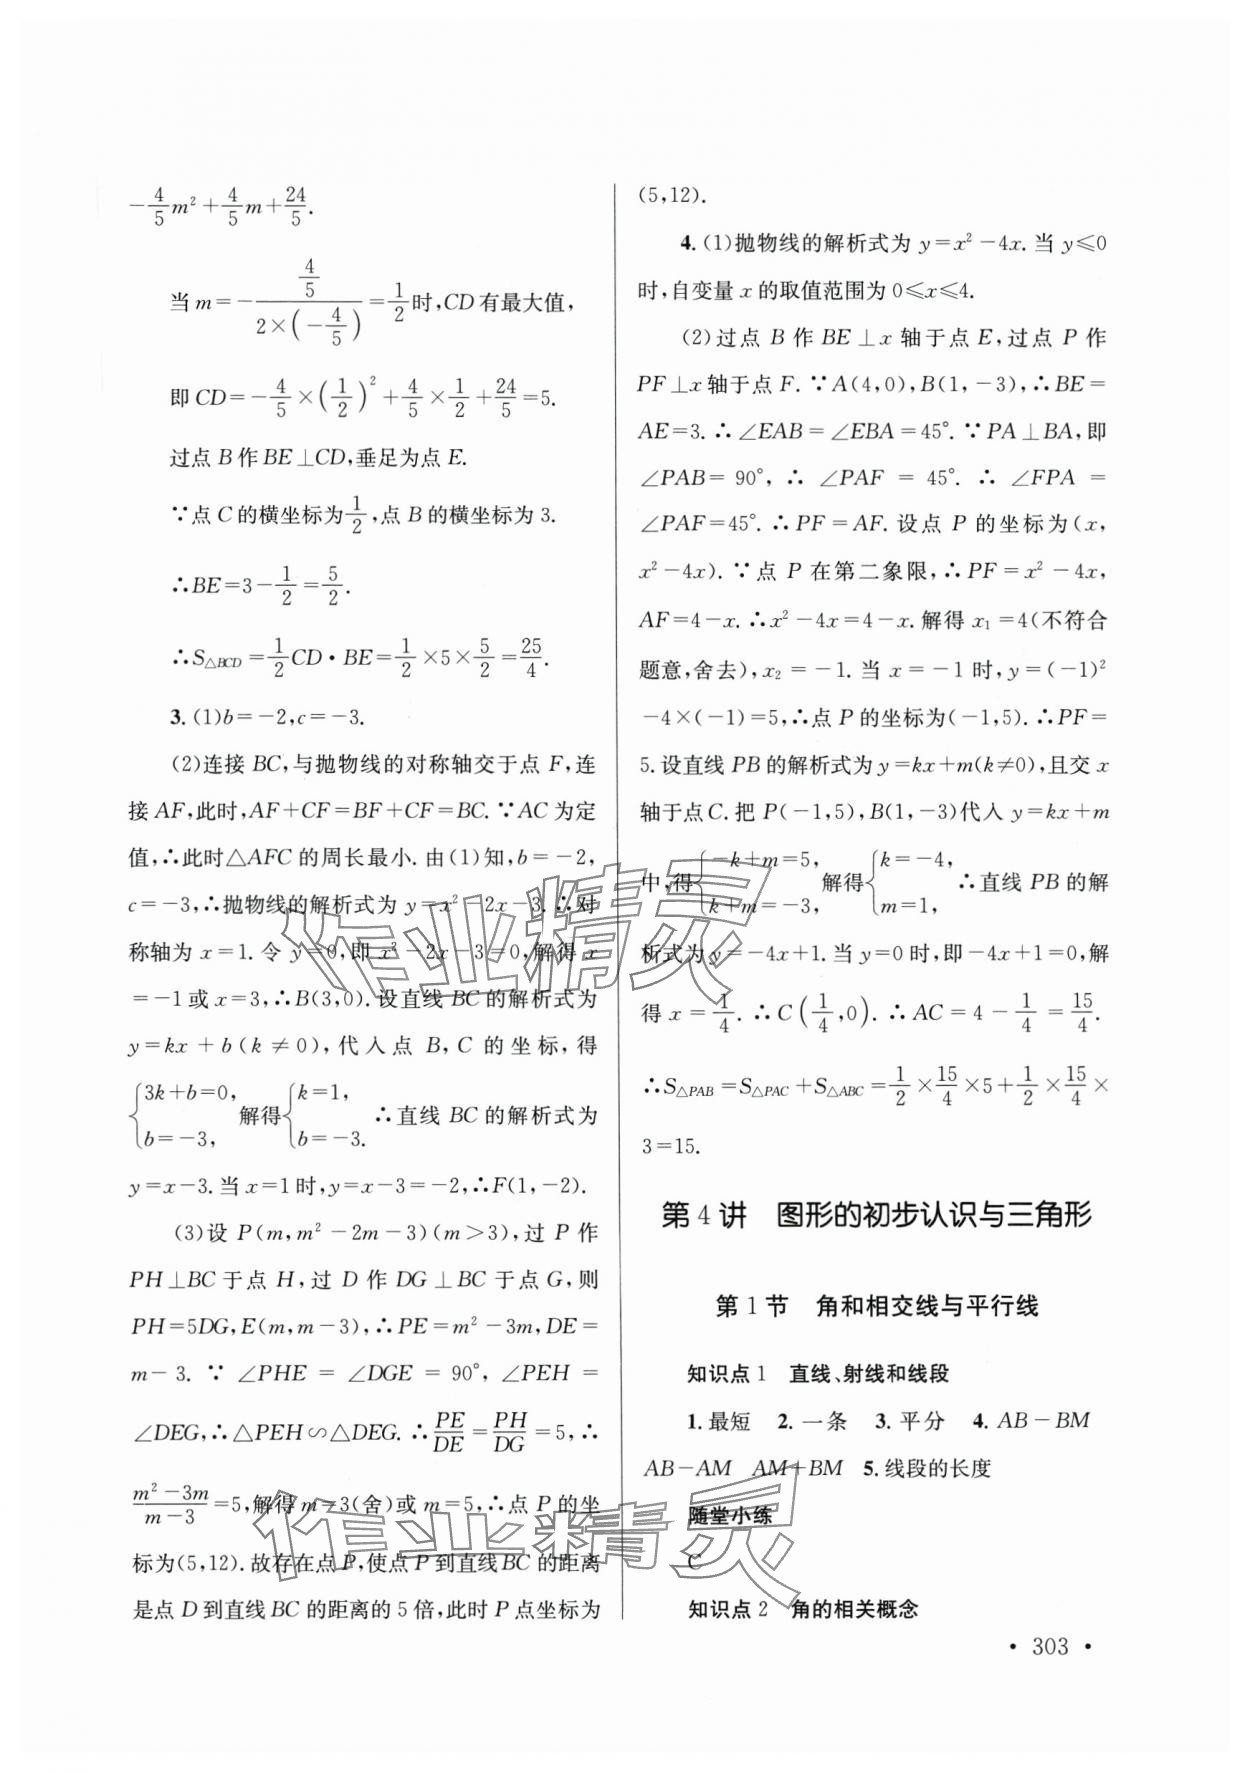 $-\frac{4}{5}m^2+\frac{4}{5}m+\frac{24}{5}$.
当 $m=-\frac{\frac{4}{5}}{2\times\left(-\frac{4}{5}\right)}=\frac{1}{2}$时,CD有最大值,
即 $CD=-\frac{4}{5}\times\left(\frac{1}{2}\right)^2+\frac{4}{5}\times\frac{1}{2}+\frac{24}{5}=5$.
过点 B 作 BE⊥CD,垂足为点 E.
∵点 C 的横坐标为$\frac{1}{2}$,点 B 的横坐标为 3.
∴$BE=3-\frac{1}{2}=\frac{5}{2}$.
∴$S_{△BCD}=\frac{1}{2}CD·BE=\frac{1}{2}\times5\times\frac{5}{2}=\frac{25}{4}$.
3. (1)b=-2,c=-3.
(2)连接 BC,与抛物线的对称轴交于点 F,连
接 AF,此时,AF+CF=BF+CF=BC.∵AC 为定
值,∴此时△AFC 的周长最小. 由(1)知,b=-2,
c=-3,∴抛物线的解析式为 y=x²-2x-3.∴对
称轴为 x=1. 令 y=0,即 x²-2x-3=0,解得 x
=-1或 x=3,∴B(3,0). 设直线 BC 的解析式为
y=kx+b(k≠0),代入点 B,C 的坐标,得
$\begin{cases}3k+b=0,\\b=-3,\end{cases}$解得$\begin{cases}k=1,\\b=-3.\end{cases}$∴直线 BC 的解析式为
y=x-3. 当 x=1时,y=x-3=-2,∴F(1,-2).
(3)设 P(m,m²-2m-3)(m>3),过 P 作
PH⊥BC于点 H,过 D 作 DG⊥BC于点 G,则
PH=5DG,E(m,m-3),∴PE=m²-3m,DE=
m-3. ∵ ∠PHE=∠DGE=90°,∠PEH=
∠DEG,∴△PEH∽△DEG.∴$\frac{PE}{DE}=\frac{PH}{DG}$=5,∴
$\frac{m^2-3m}{m-3}$=5,解得 m=3(舍)或 m=5,∴点 P 的坐
标为(5,12). 故存在点 P,使点 P 到直线 BC 的距离
是点 D 到直线 BC 的距离的 5 倍,此时 P 点坐标为
(5,12).
4. (1)抛物线的解析式为 y=x²-4x. 当 y≤0
时,自变量 x 的取值范围为 0≤x≤4.
(2)过点 B 作 BE⊥x 轴于点 E,过点 P 作
PF⊥x 轴于点 F.∵A(4,0),B(1,-3),∴BE=
AE=3.∴∠EAB=∠EBA=45°.∵PA⊥BA,即
∠PAB=90°,∴∠PAF=45°.∴∠FPA=
∠PAF=45°.∴PF=AF. 设点 P 的坐标为(x,
x²-4x).∵点 P 在第二象限,∴PF=x²-4x,
AF=4-x.∴x²-4x=4-x. 解得 x₁=4(不符合
题意,舍去),x₂=-1. 当 x=-1时,y=(-1)²
-4×(-1)=5,∴点 P 的坐标为(-1,5).∴PF=
5. 设直线 PB 的解析式为 y=kx+m(k≠0),且交 x
轴于点 C. 把 P(-1,5),B(1,-3)代入 y=kx+m
中,得$\begin{cases}-k+m=5,\\k+m=-3,\end{cases}$解得$\begin{cases}k=-4,\\m=1,\end{cases}$∴直线 PB 的解
析式为 y=-4x+1. 当 y=0 时,即-4x+1=0,解
得 $x=\frac{1}{4}$.∴$C\left(\frac{1}{4},0\right)$.∴$AC=4-\frac{1}{4}=\frac{15}{4}$.
∴$S_{△PAB}=S_{△PAC}+S_{△ABC}=\frac{1}{2}\times\frac{15}{4}\times5+\frac{1}{2}\times\frac{15}{4}\times$
3=15.
第 4 讲 图形的初步认识与三角形
第 1 节 角和相交线与平行线
知识点 1 直线、射线和线段
1. 最短 2. 一条 3. 平分 4. AB-BM
AB-AM AM+BM 5. 线段的长度
随堂小练
C
知识点 2 角的相关概念
· 303 ·
作业精灵
作业精灵